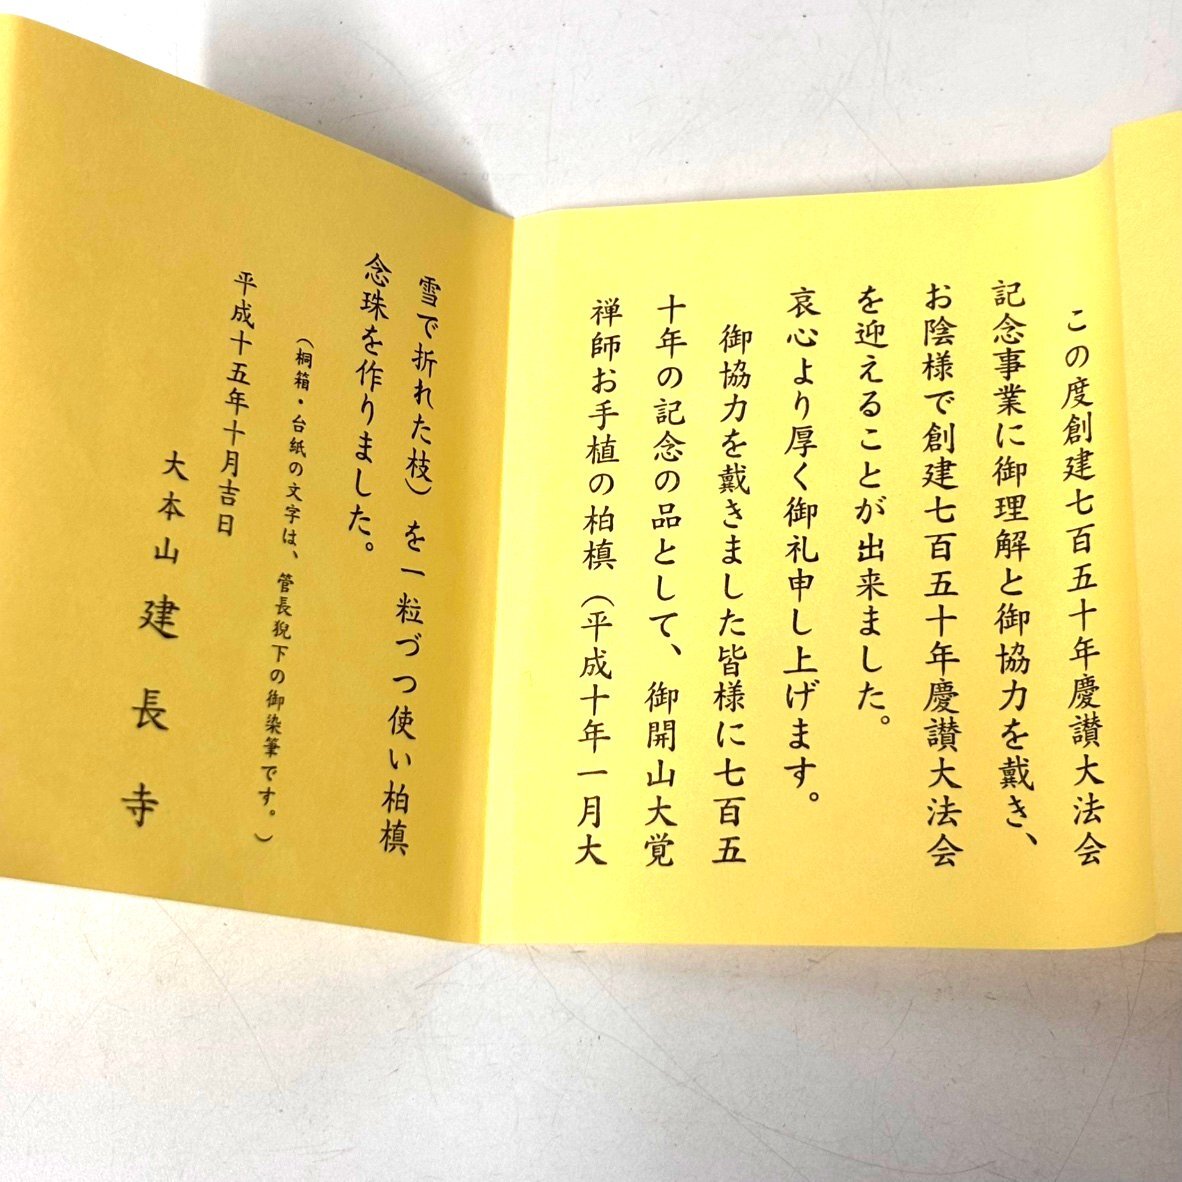 この度創建七百五十年慶讃大法会
記念事業に御理解と御協力を戴き、
お陰様で創建七百五十年慶讃大法会
を迎えることが出来ました。
哀心より厚く御礼申し上げます。
御協力を戴きました皆様に七百五
十年の記念の品として、御開山大覚
禅師お手植の柏槙（平成十年一月大
雪で折れた枝）を一粒づつ使い柏槙
念珠を作りました。
（桐箱・台紙の文字は、管長猊下の御染筆です。）
平成十五年十月吉日
大本山建長寺